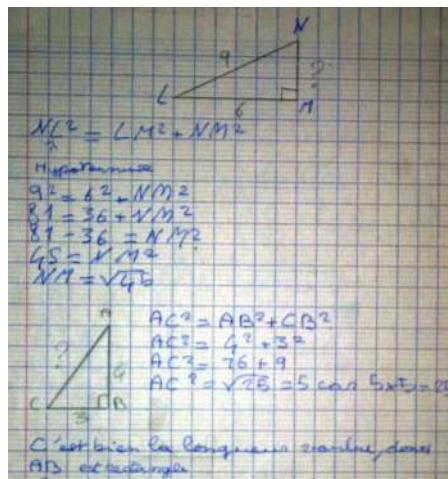 N
9
?
L
6
M
NL² = LM² + NM²
Hypoténuse
9² = 6² + NM²
81 = 36 + NM²
81 - 36 = NM²
45 = NM²
NM = √45
A
AC² = AB² + CB²
?
4
AC² = 4² + 3²
AC² = 16 + 9
AC² = √25 = 5 car 5x5 = 25
C
3
B
C'est bien la longueur donc
AB rectangle